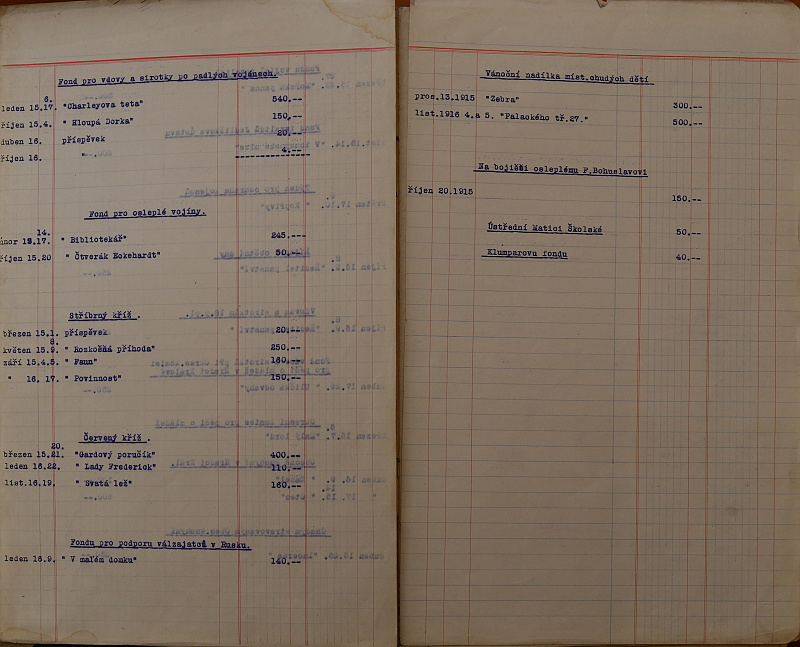 Fond pro vdovy a sirotky po padlých vojínech.
6.
leden 15.17. "Charleyova teta" 540.--
říjen 15.4. " Hloupá Dorka" 150.--
duben 16. příspěvek 20.--
říjen 16. " 4.--
Fond pro oslepé vojíny.
14.
únor 15.17. " Bibliotekář" 245.---
říjen 15.20 " Čtverák Eckehardt" 50.--
Stříbrný kříž .
březen 15.1. příspěvek 20.--
8.
květen 15.9. " Rozkošná příhoda" 250.--
září 15.4.5. " Faun" 160.--
" 16. 17. " Povinnost" 150.--
Červený kříž .
20.
březen 15.21. "Gardový poručík" 400.--
leden 16.22. " Lady Frederick" 110.--
list.16.19. " Svatá leš" 160.--
Fondu pro podporu válzajatců v Rusku.
leden 16.9. " V malém domku" 140.--
Vánoční nadílka míst.chudých dětí
pros.13.1915 "Zebra" 300.--
list.1916 4.a 5. "Palackého tř.27." 500.--
Na bojišti osleplému F.Bohuslavovi
říjen 20,1915 150.--
Ústřední Matici Školské 50.--
Klumparovu fondu 40.--